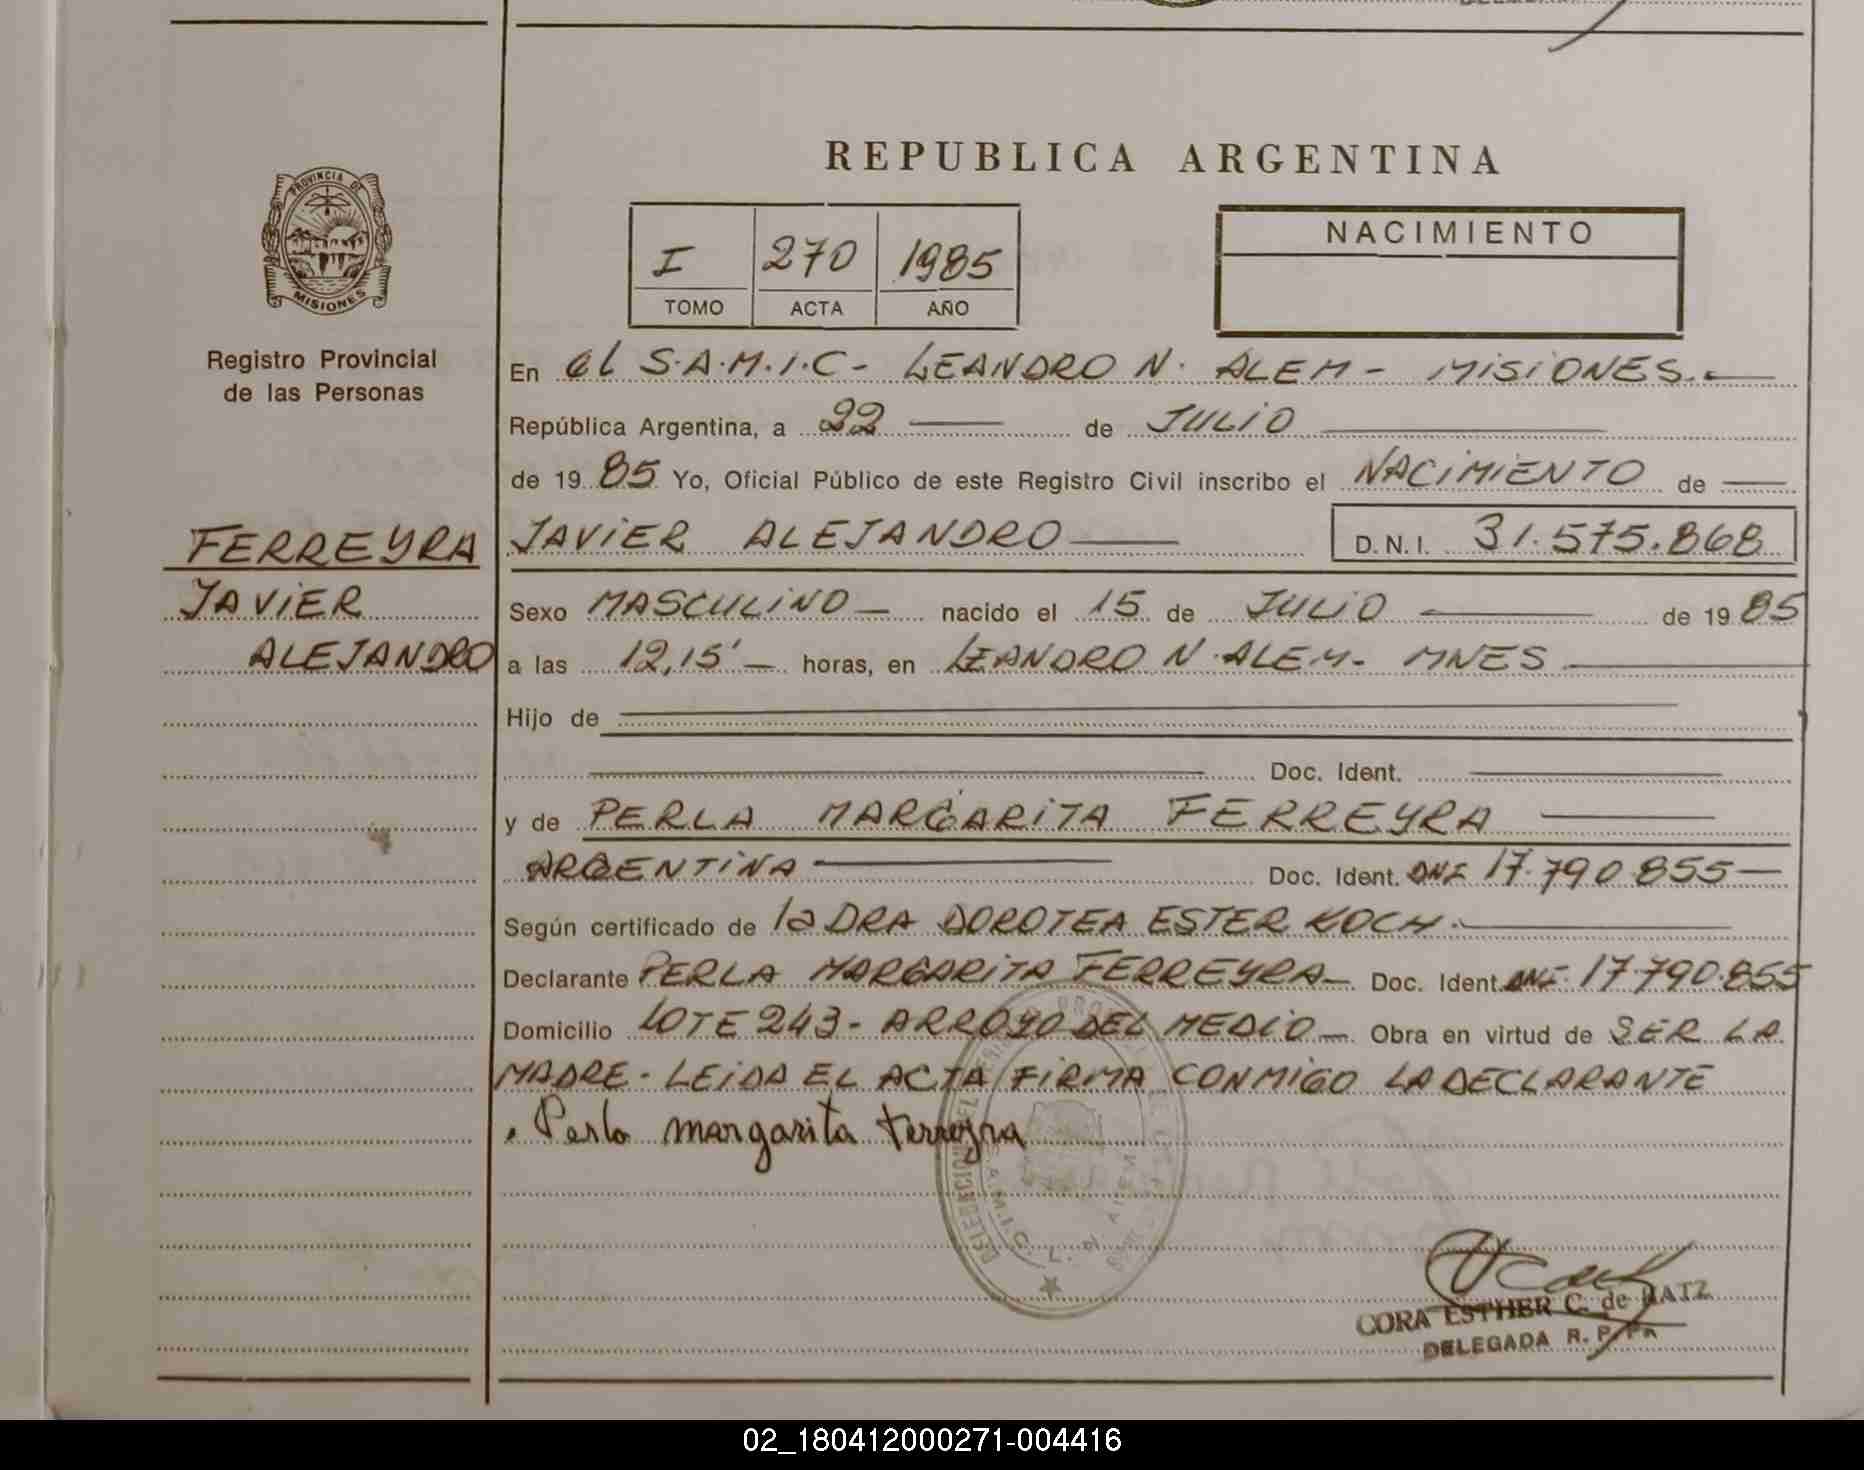 REPUBLICA ARGENTINA
PROVINCIA DE
MISIONES
Registro Provincial
de las Personas
I 270 1985
TOMO ACTA AÑO
NACIMIENTO
En el S.A.M.I.C- LEANDRO N. ALEM - MISIONES.-
República Argentina, a 22 de JULIO
de 19 85 Yo, Oficial Público de este Registro Civil inscribo el NACIMIENTO de
FERREYRA
JAVIER
ALEJANDRO
JAVIER ALEJANDRO D.N.I. 31.575.868
Sexo MASCULINO nacido el 15 de JULIO de 19 85
a las 12,15' horas, en LEANDRO N. ALEM- MNES
Hijo de
Doc. Ident.
y de PERLA MARGARITA FERREYRA
ARGENTINA Doc. Ident. DNI 17.790.855
Según certificado de la DRA DOROTEA ESTER KOCH.
Declarante PERLA MARGARITA FERREYRA Doc. Ident. DNI 17.790.855
Domicilio LOTE 243- ARROYO DEL MEDIO Obra en virtud de SER LA
MADRE- LEIDA EL ACTA FIRMA CONMIGO LA DECLARANTE
Perla margarita Ferreyra
CORA ESTHER C. de RATZ
DELEGADA R. P. P.
02_180412000271-004416